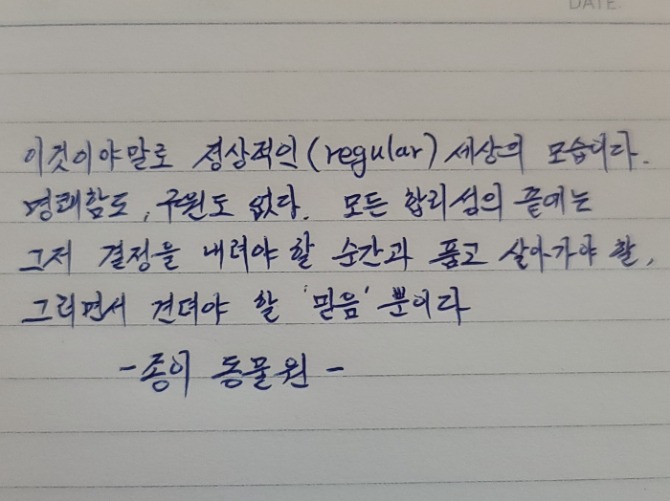 DATE
이것이야말로 정상적인(regular) 세상의 모습이다.
명쾌함도, 구원도 없다. 모든 합리성의 끝에는
그저 결정을 내려야 할 순간과 품고 살아가야 할,
그러면서 견뎌야 할 '믿음' 뿐이다
-종이 동물원-